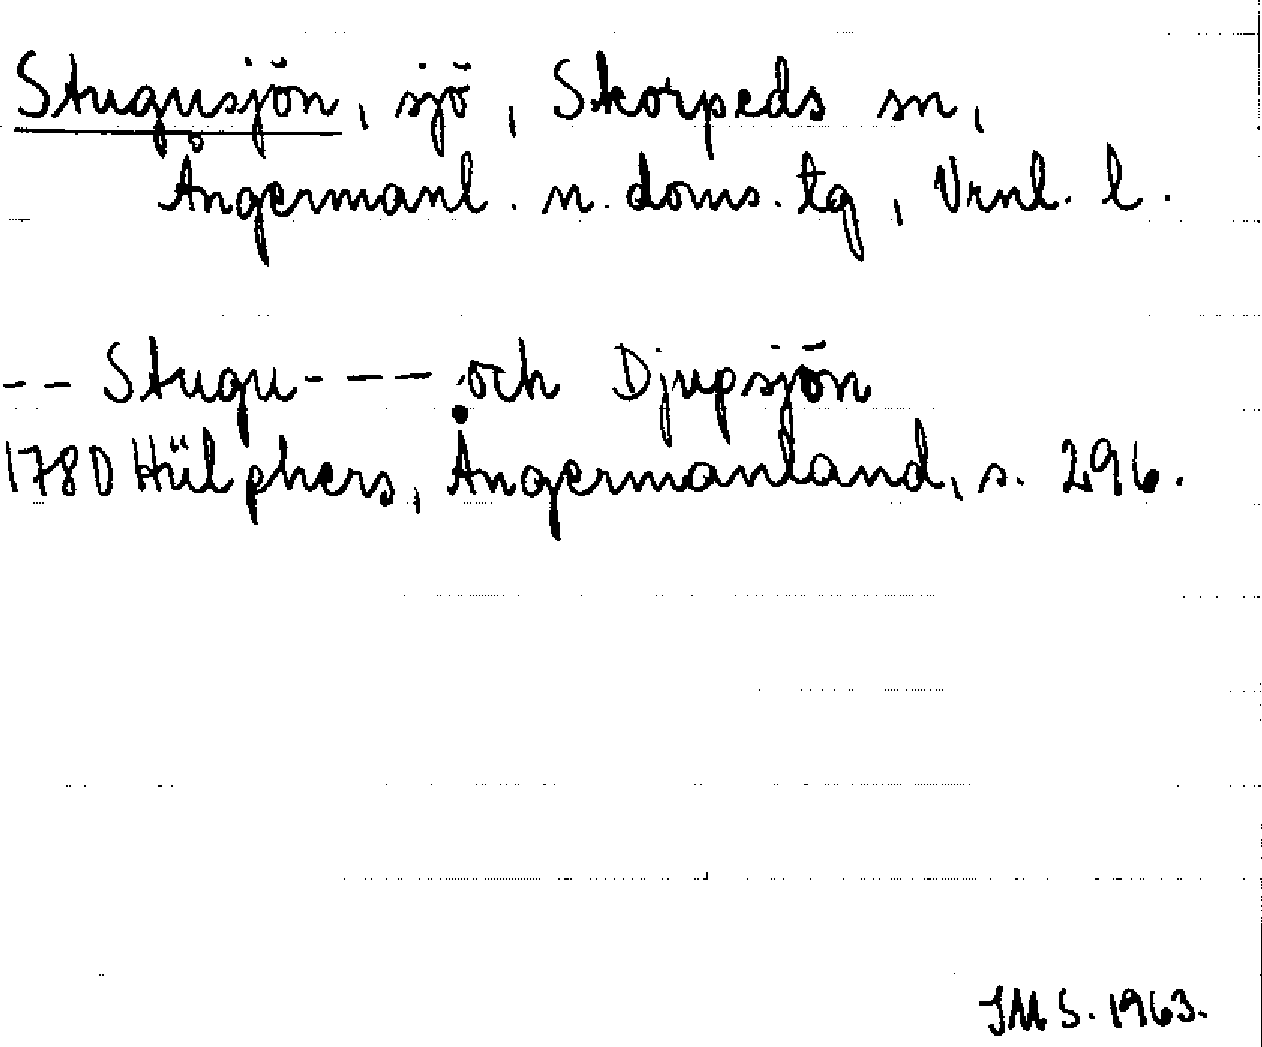 Stugusjön, sjö, Skorpeds sn,
Ångermanl. n. doms. tg, Vrnl. l.
-- Stugu---- och Djupsjön
1780 Hülphers, Ångermanland, s. 296.
JMS. 1963.